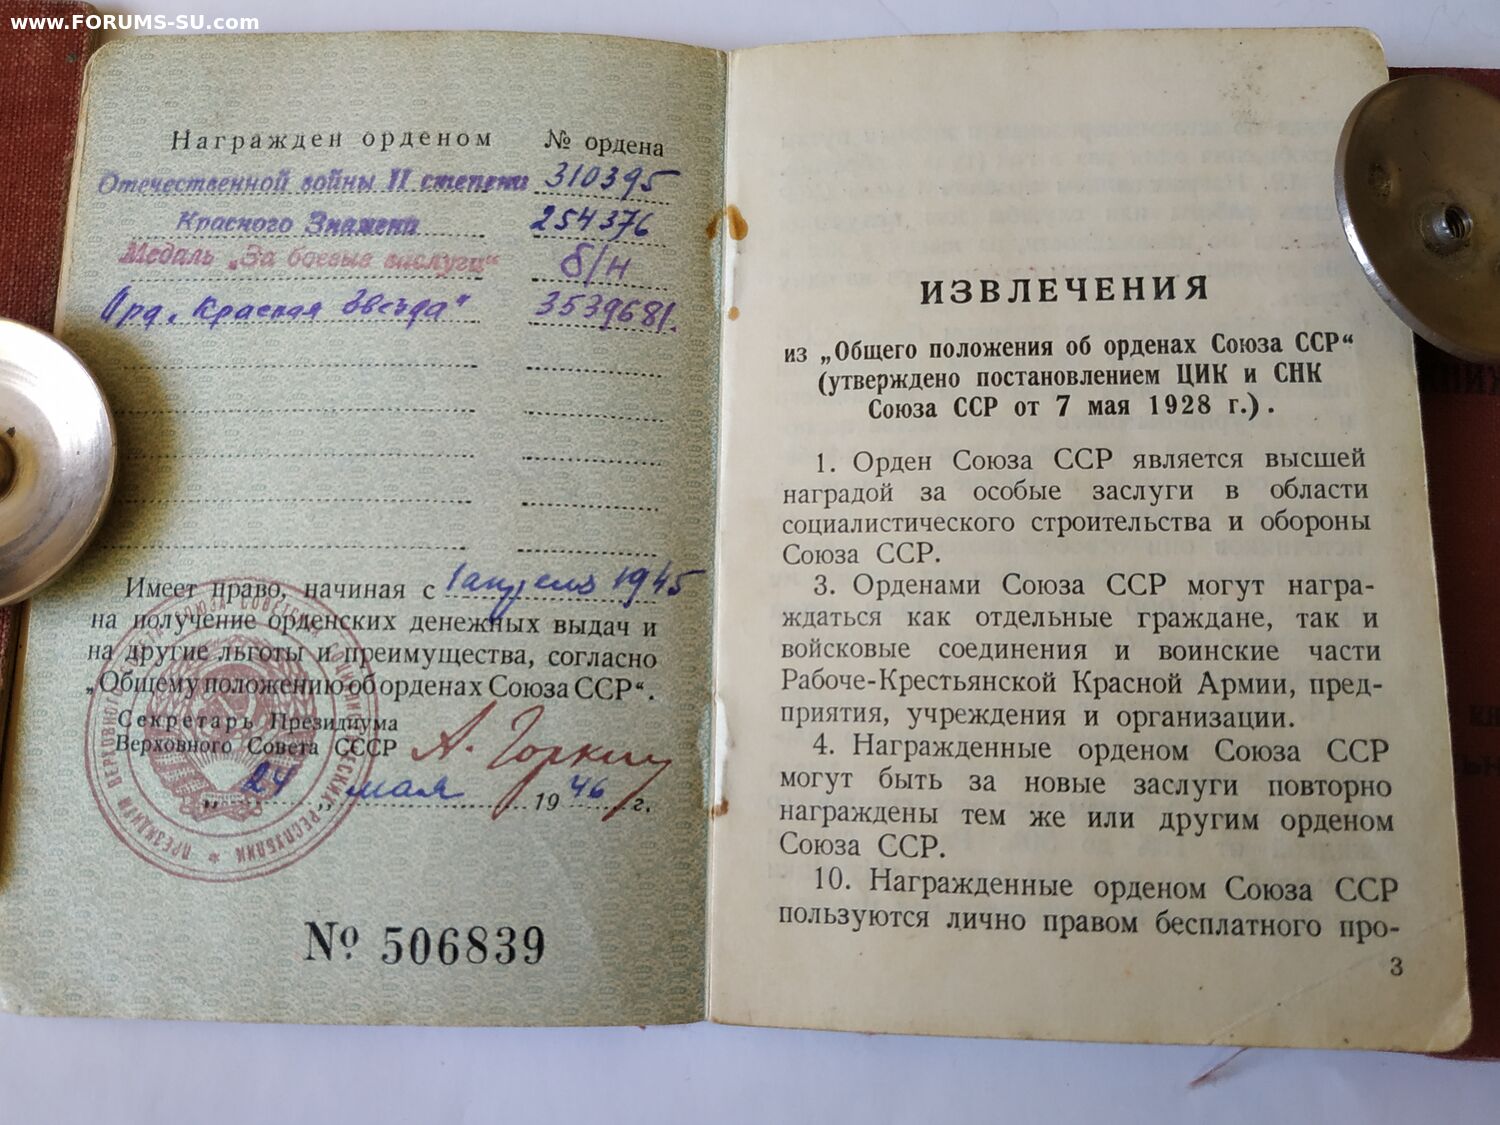 www.FORUMS-SU.com
Награжден орденом № ордена
Отечественной войны II степени 310395
Красного Знамени 254376
Медаль „За боевые заслуги“ б/н
Орд. „Красная Звезда“ 3539681.
Имеет право, начиная с 1 апреля 1945
на получение орденских денежных выдач и
на другие льготы и преимущества, согласно
„Общему положению об орденах Союза ССР“.
Секретарь Президиума
Верховного Совета СССР А. Горкин
„24„ мая 1946 г.
№ 506839
ИЗВЛЕЧЕНИЯ
из „Общего положения об орденах Союза ССР“
(утверждено постановлением ЦИК и СНК
Союза ССР от 7 мая 1928 г.).
1. Орден Союза ССР является высшей
наградой за особые заслуги в области
социалистического строительства и обороны
Союза ССР.
3. Орденами Союза ССР могут награ-
ждаться как отдельные граждане, так и
войсковые соединения и воинские части
Рабоче-Крестьянской Красной Армии, пред-
приятия, учреждения и организации.
4. Награжденные орденом Союза ССР
могут быть за новые заслуги повторно
награждены тем же или другим орденом
Союза ССР.
10. Награжденные орденом Союза ССР
пользуются лично правом бесплатного про-
3